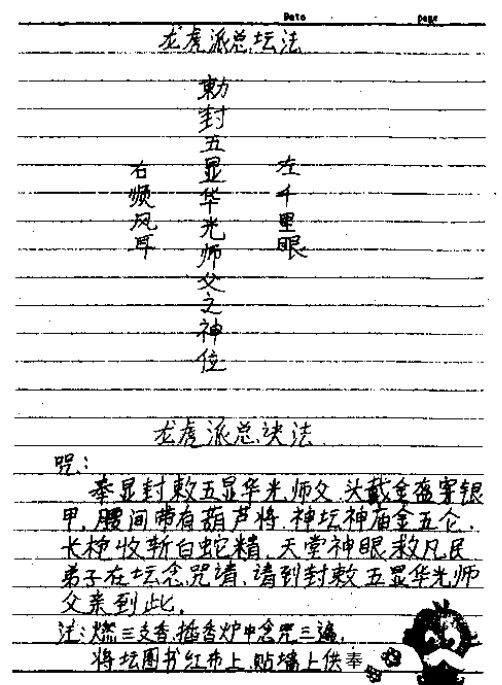 Date page
龙虎派总坛法
勅封五显华光师父之神位
左千里眼
右顺风耳
龙虎派总诀法
咒：
奉显封敕五显华光师父,头戴金盔穿银
甲,腰间带有葫芦将,神坛神庙金五仑,
长枪收斩白蛇精,天堂神眼救凡民
弟子在坛念咒请,请到封敕五显华光师
父亲到此,
注:燃三支香,插香炉中念咒三遍,
将坛图书红布上,贴墙上供奉